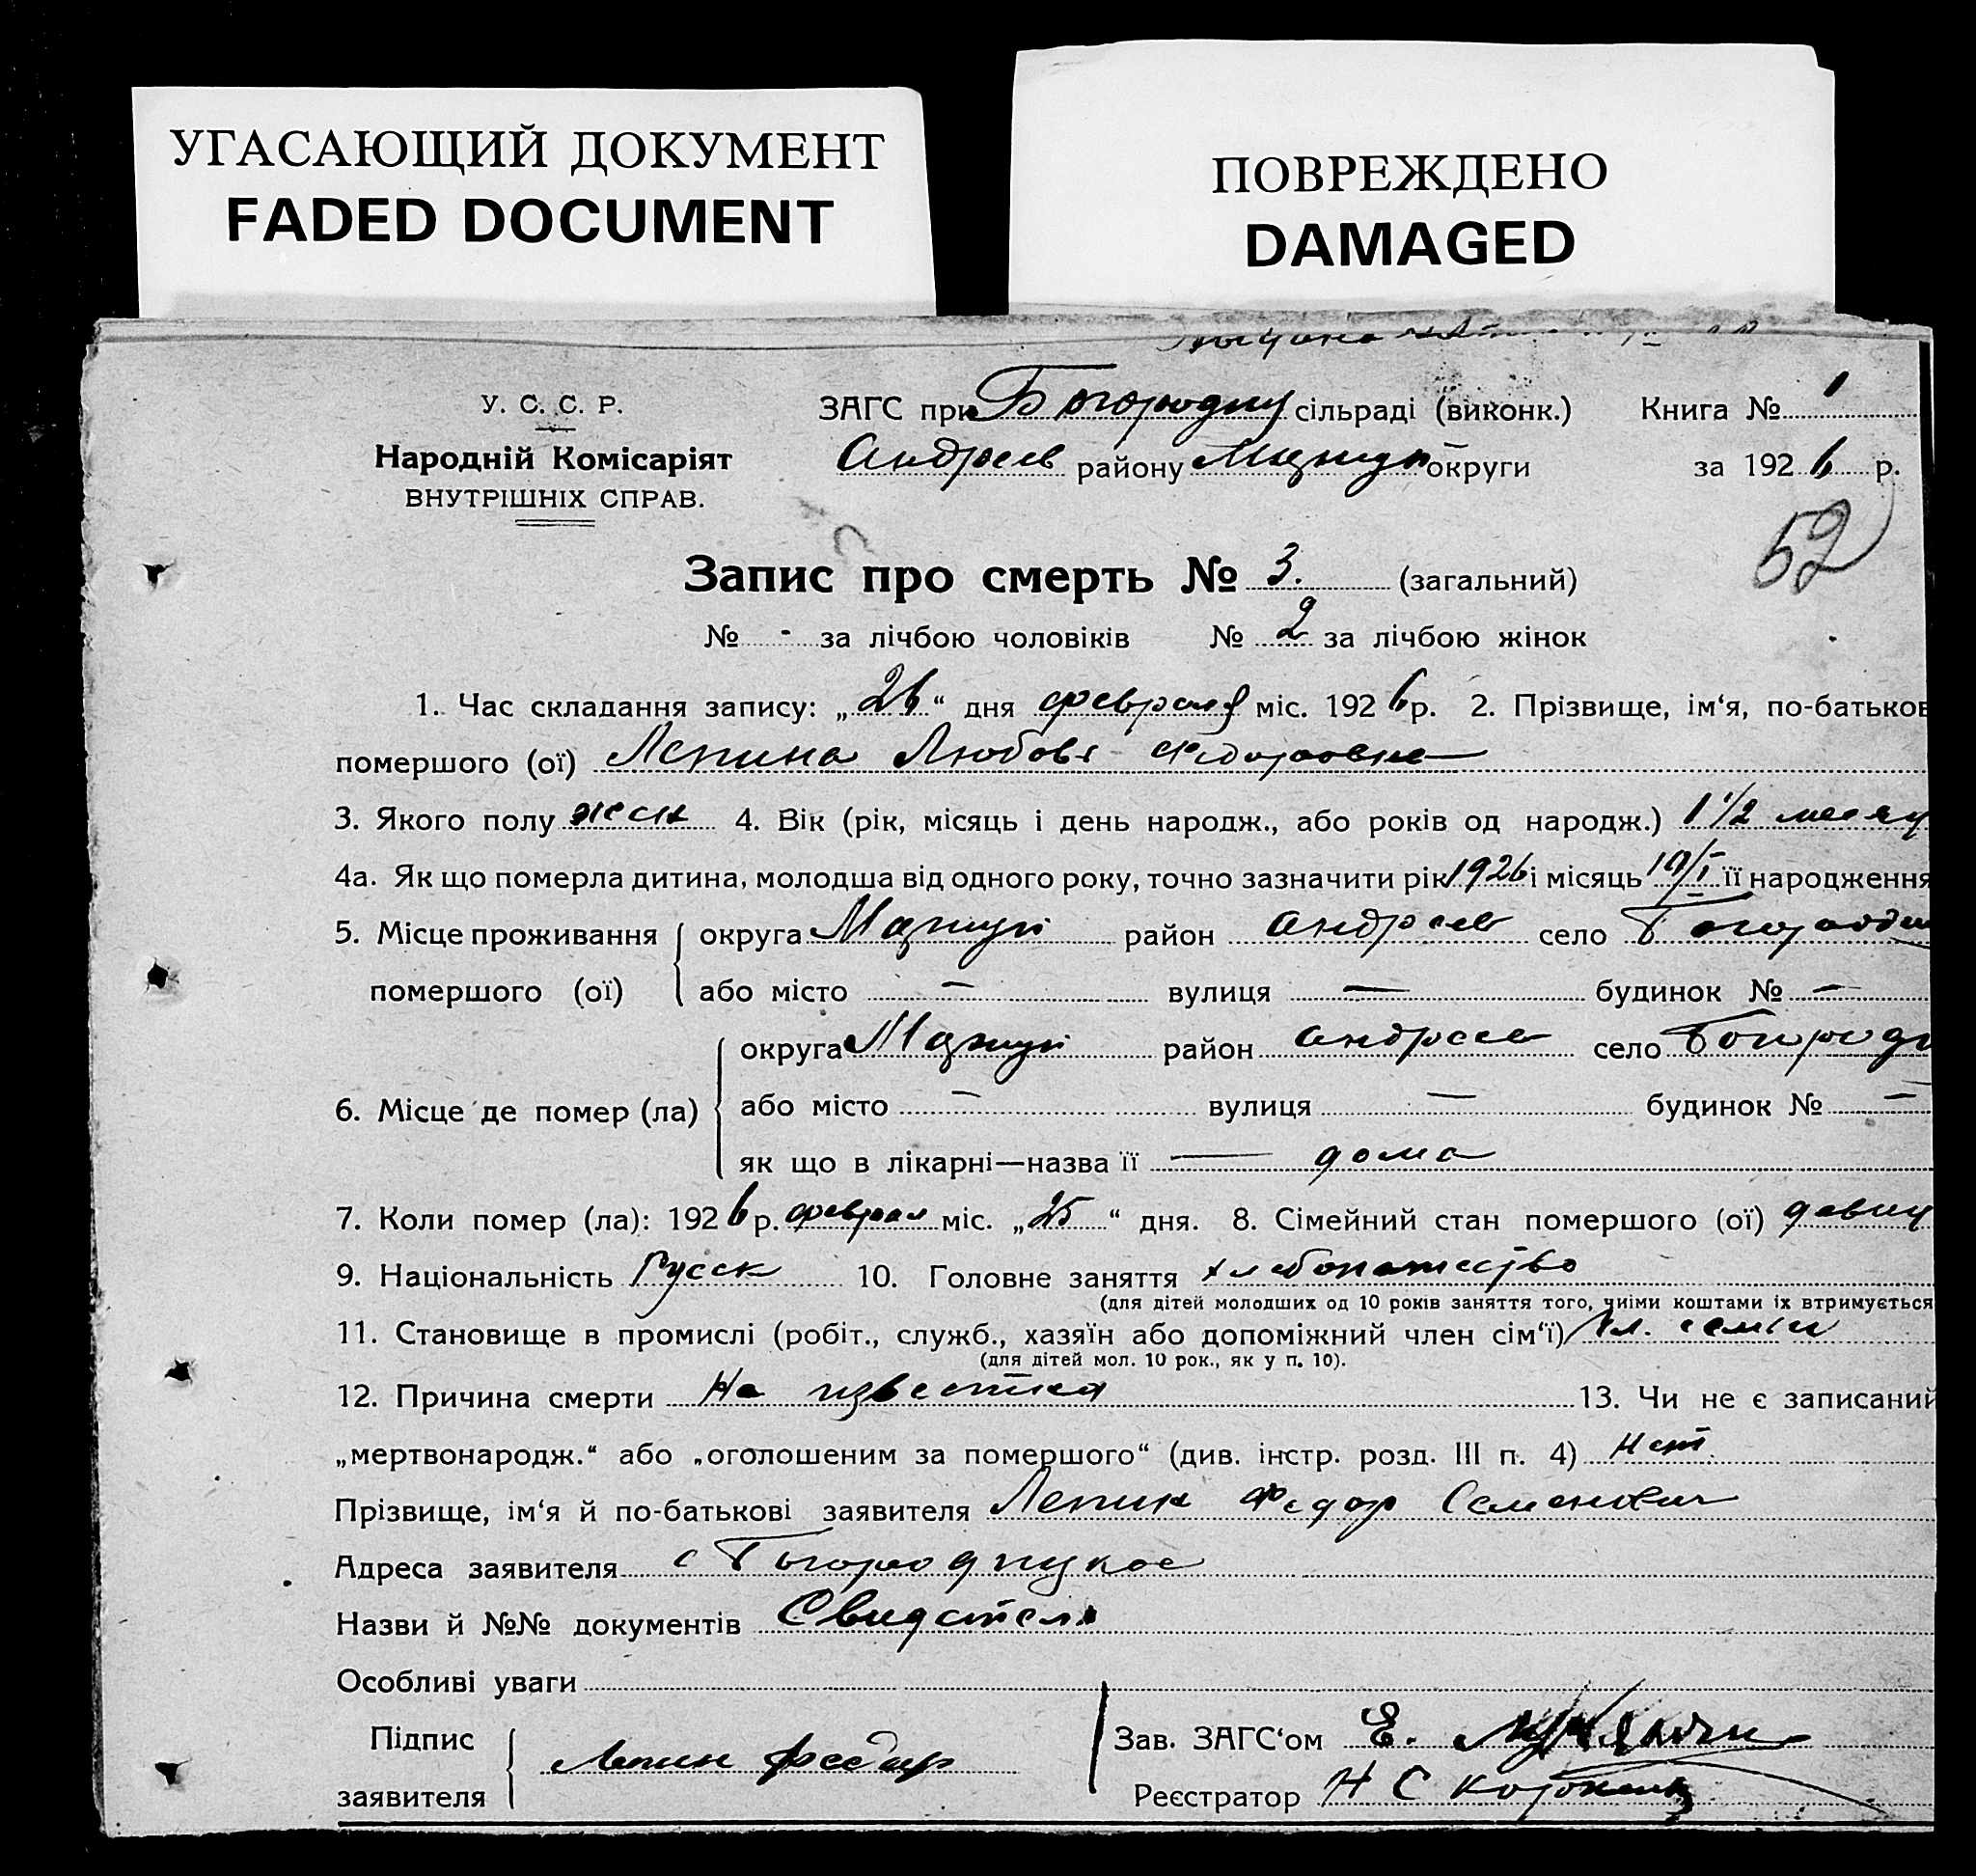 УГАСАЮЩИЙ ДОКУМЕНТ
FADED DOCUMENT
ПОВРЕЖДЕНО
DAMAGED
У. С. С. Р.
Народній Комісаріят
ВНУТРІШНІХ СПРАВ.
ЗАГС при Богородиц сільраді (виконк.) Книга № 1
Андреев району округи за 1926 р.
52
Запис про смерть № 3. (загальний)
№ - за лічбою чоловіків № 2 за лічбою жінок
1. Час складання запису: „26“ дня февраля міс. 1926 р. 2. Прізвище, ім‘я, по-батьков
помершого (ої) Лепина Любовь Федоровна
3. Якого полу жен 4. Вік (рік, місяць і день народж., або років од народж.) 1 1/2 месяц
4а. Як що померла дитина, молодша від одного року, точно зазначити рік 1926 і місяць її народження
5. Місце проживання округа район Андреев село Богородиц
помершого (ої) або місто — вулиця — будинок № —
округа район Андреев село Богороди
6. Місце де помер (ла) або місто — вулиця — будинок № —
як що в лікарні—назва її — дома
7. Коли помер (ла): 1926 р. феврал міс. „25“ дня. 8. Сімейний стан помершого (ої) девиц
9. Національність Русск 10. Головне заняття хлебопашество
(для дітей молодших од 10 років заняття того, чиїми коштами їх втримується
11. Становище в промислі (робіт., служб., хазяїн або допоміжний член сім‘ї) чл. семьи
(для дітей мол. 10 рок., як у п. 10).
12. Причина смерти Не известна 13. Чи не є записаний
„мертвонародж.“ або „оголошеним за помершого“ (див. інстр. розд. III п. 4) нет
Прізвище, ім‘я й по-батькові заявителя Лепин Федор Семенович
Адреса заявителя с Богородицкое
Назви й №№ документів Свидетел
Особливі уваги
Підпис
заявителя Лепин Федор
Зав. ЗАГС‘ом Е.
Реєстратор Н С